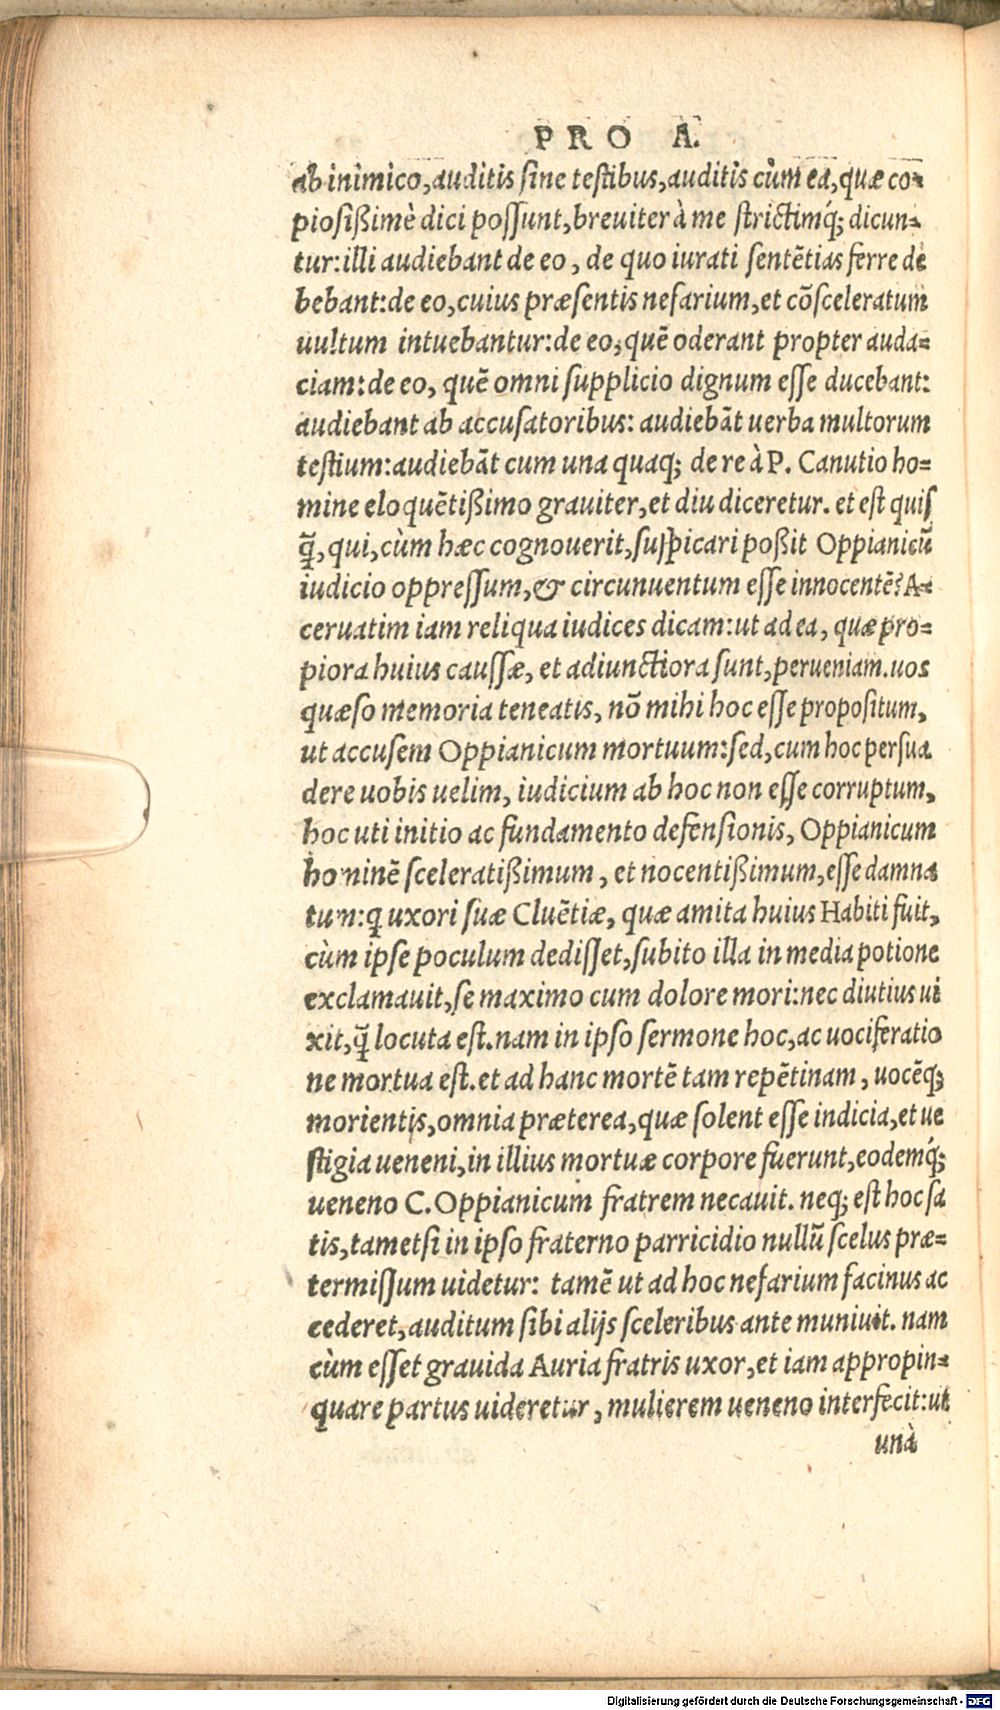 PRO A.
ab inimico, auditis sine testibus, auditis cùm ea, quæ co-
piosißimè dici possunt, breuiter à me strictimq́; dicun-
tur: illi audiebant de eo, de quo iurati sentẽtias ferre de
bebant: de eo, cuius præsentis nefarium, et cõsceleratum
uultum intuebantur: de eo, quẽ oderant propter auda-
ciam: de eo, quẽ omni supplicio dignum esse ducebant:
audiebant ab accusatoribus: audiebãt uerba multorum
testium: audiebãt cum una quaq; de re à P. Canutio ho-
mine eloquẽtißimo grauiter, et diu diceretur. et est quis
q̃, qui, cùm hæc cognouerit, suspicari poßit Oppianicũ
iudicio oppressum, & circunuentum esse innocentẽ? A-
ceruatim iam reliqua iudices dicam: ut ad ea, quæ pro-
piora huius caussæ, et adiunctiora sunt, perueniam. uos
quæso memoria teneatis, nõ mihi hoc esse propositum,
ut accusem Oppianicum mortuum: sed, cum hoc persua
dere uobis uelim, iudicium ab hoc non esse corruptum,
hoc uti initio ac fundamento defensionis, Oppianicum
hominẽ sceleratißimum, et nocentißimum, esse damna
tum: q uxori suæ Cluẽtiæ, quæ amita huius Habiti fuit,
cùm ipse poculum dedisset, subito illa in media potione
exclamauit, se maximo cum dolore mori: nec diutius ui
xit, q̃ locuta est. nam in ipso sermone hoc, ac uociferatio
ne mortua est. et ad hanc mortẽ tam repẽtinam, uocẽq;
morientis, omnia præterea, quæ solent esse indicia, et ue
stigia ueneni, in illius mortuæ corpore fuerunt, eodemq́;
ueneno C. Oppianicum fratrem necauit. neq; est hoc sa
tis, tametsi in ipso fraterno parricidio nullũ scelus præ-
termissum uidetur: tamẽ ut ad hoc nefarium facinus ac
cederet, auditum sibi alijs sceleribus ante muniuit. nam
cùm esset grauida Auria fratris uxor, et iam appropin-
quare partus uideretur, mulierem ueneno interfecit: ut
unà
Digitalisierung gefördert durch die Deutsche Forschungsgemeinschaft - DFG